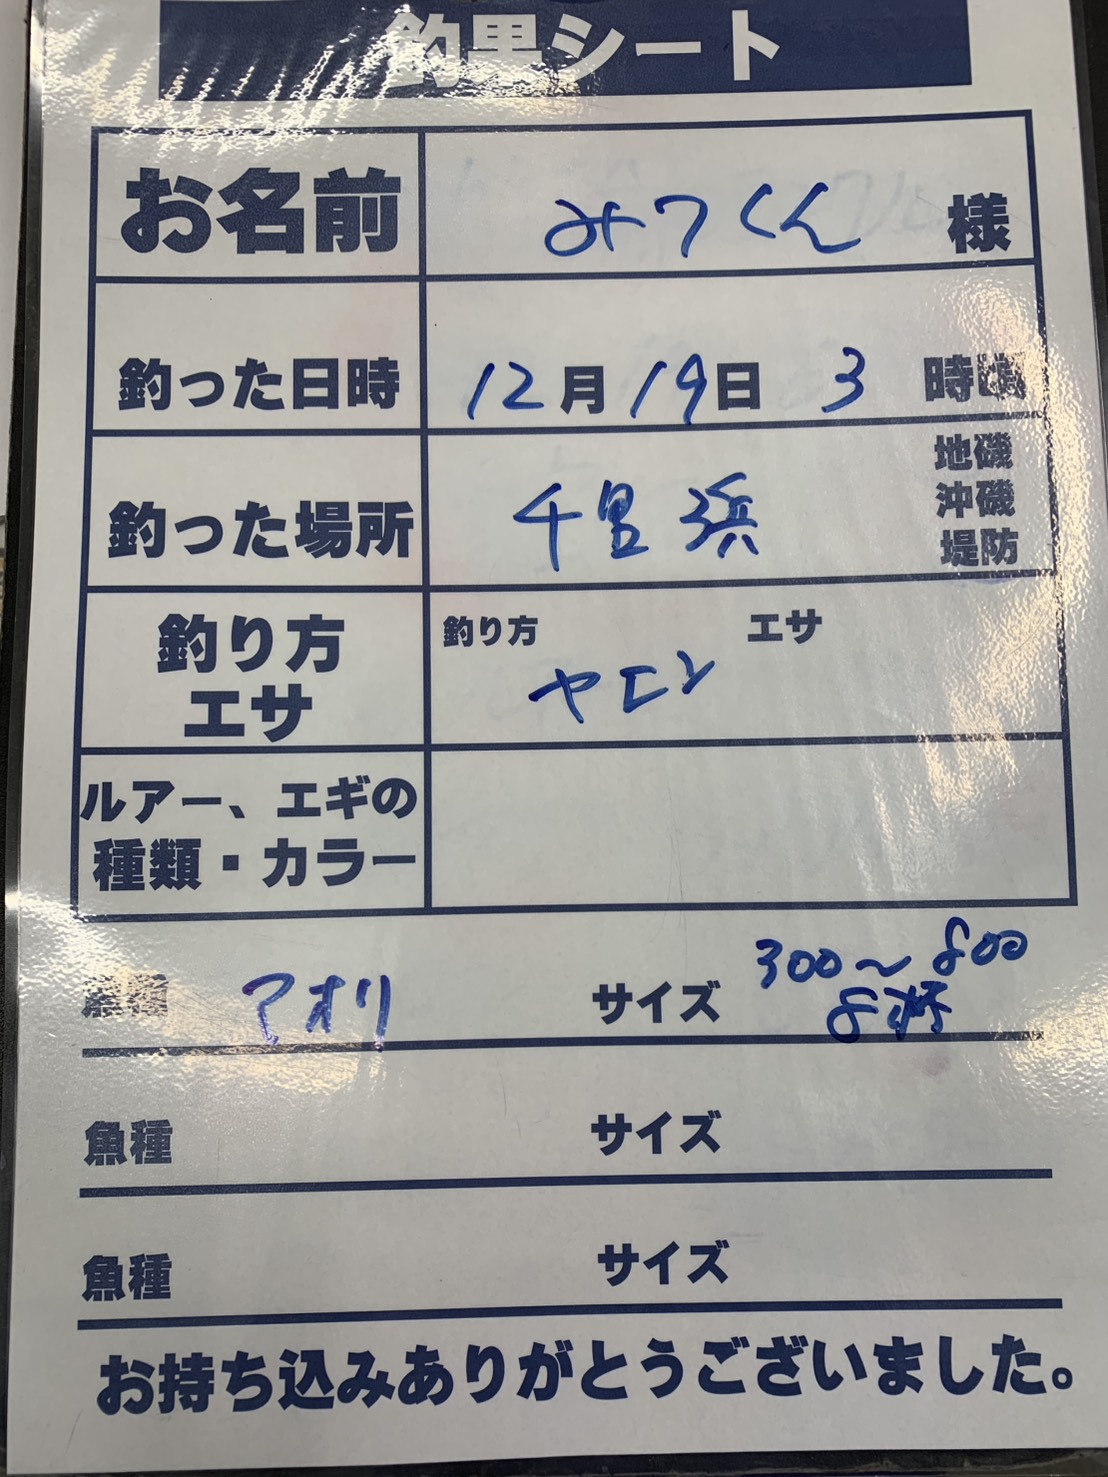 釣果シート
お名前 みつくん 様
釣った日時 12月19日 3 時頃
釣った場所 千里浜 地磯
沖磯
堤防
釣り方
エサ
釣り方 エサ
ヤエン
ルアー、エギの
種類・カラー
魚種 アオリ サイズ 300〜800
8杯
魚種 サイズ
魚種 サイズ
お持ち込みありがとうございました。